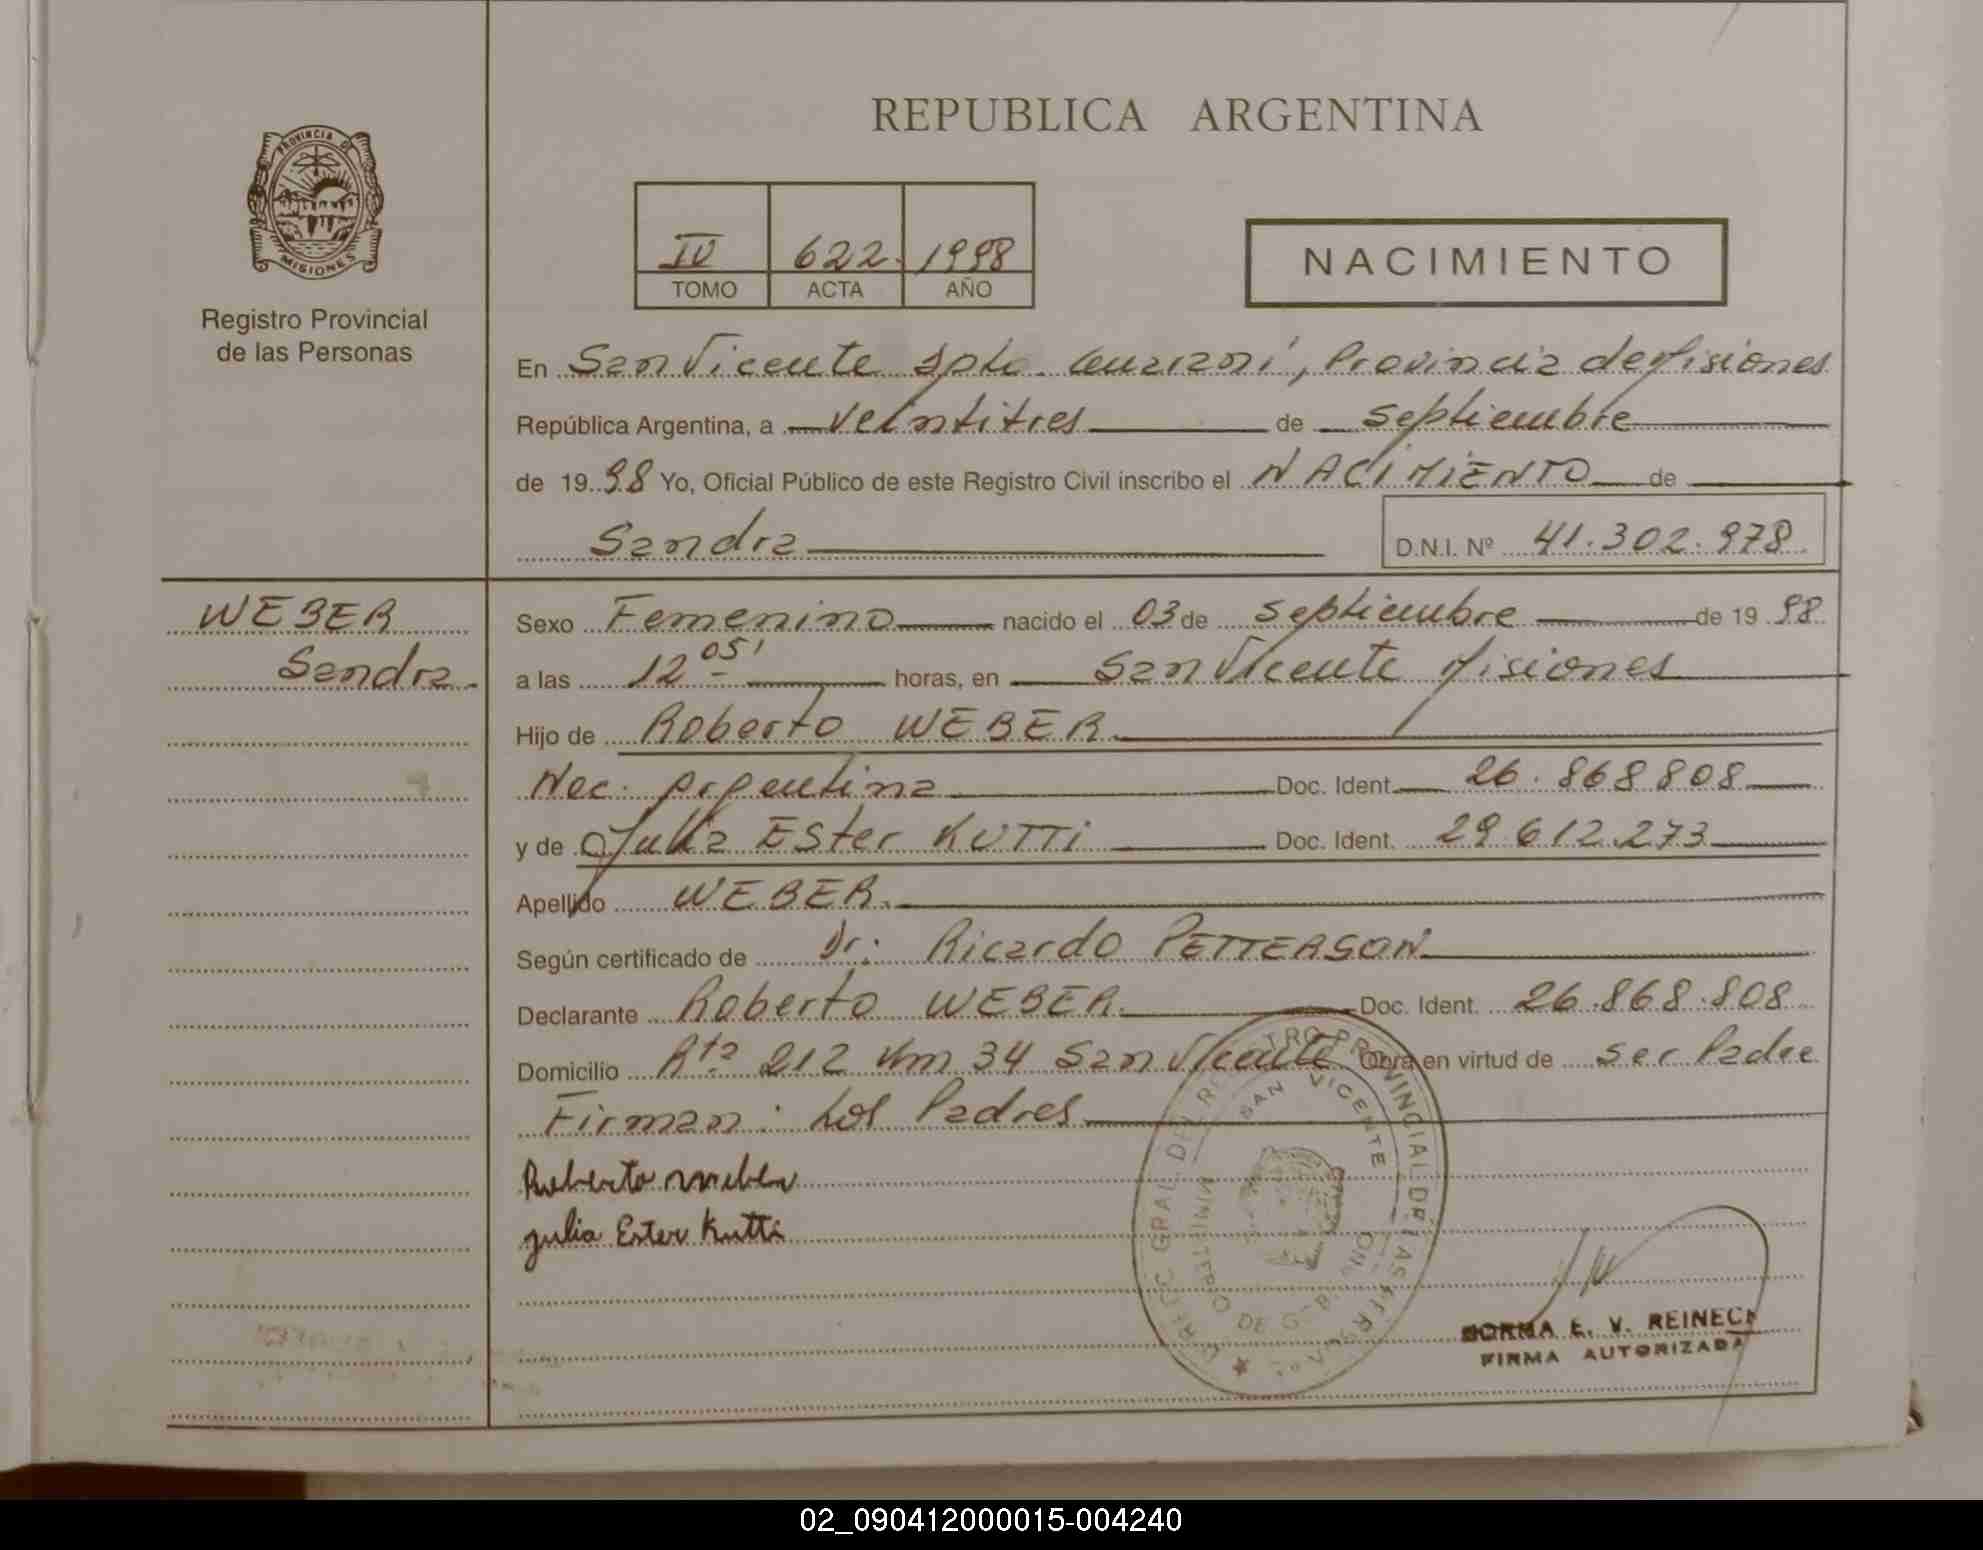 REPUBLICA ARGENTINA
PROVINCIA DE
MISIONES
Registro Provincial
de las Personas
IV 622 1998
TOMO ACTA AÑO
NACIMIENTO
En San Vicente Dpto. Guaraní, Provincia de Misiones
República Argentina, a veintitres de septiembre
de 1998 Yo, Oficial Público de este Registro Civil inscribo el NACIMIENTO de
Sandra D.N.I. Nº 41.302.978
WEBER
Sandra
Sexo Femenino nacido el 03 de septiembre de 1998
a las 12 05' horas, en San Vicente Misiones
Hijo de Roberto WEBER
Nac. Argentina Doc. Ident. 26.868808
y de Julia Ester KUTTI Doc. Ident. 29.612.273
Apellido WEBER
Según certificado de Dr. Ricardo PETTERSON
Declarante Roberto WEBER Doc. Ident. 26.868.808
Domicilio Rta 212 Km 34 San Vicente Obra en virtud de ser Padre
Firman: Los Padres
Roberto
Julia Ester Kutti
SAN VICENTE
NORMA E. V. REINECK
FIRMA AUTORIZADA
02_090412000015-004240